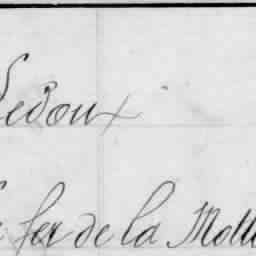 Ledoux
fer de la Motte